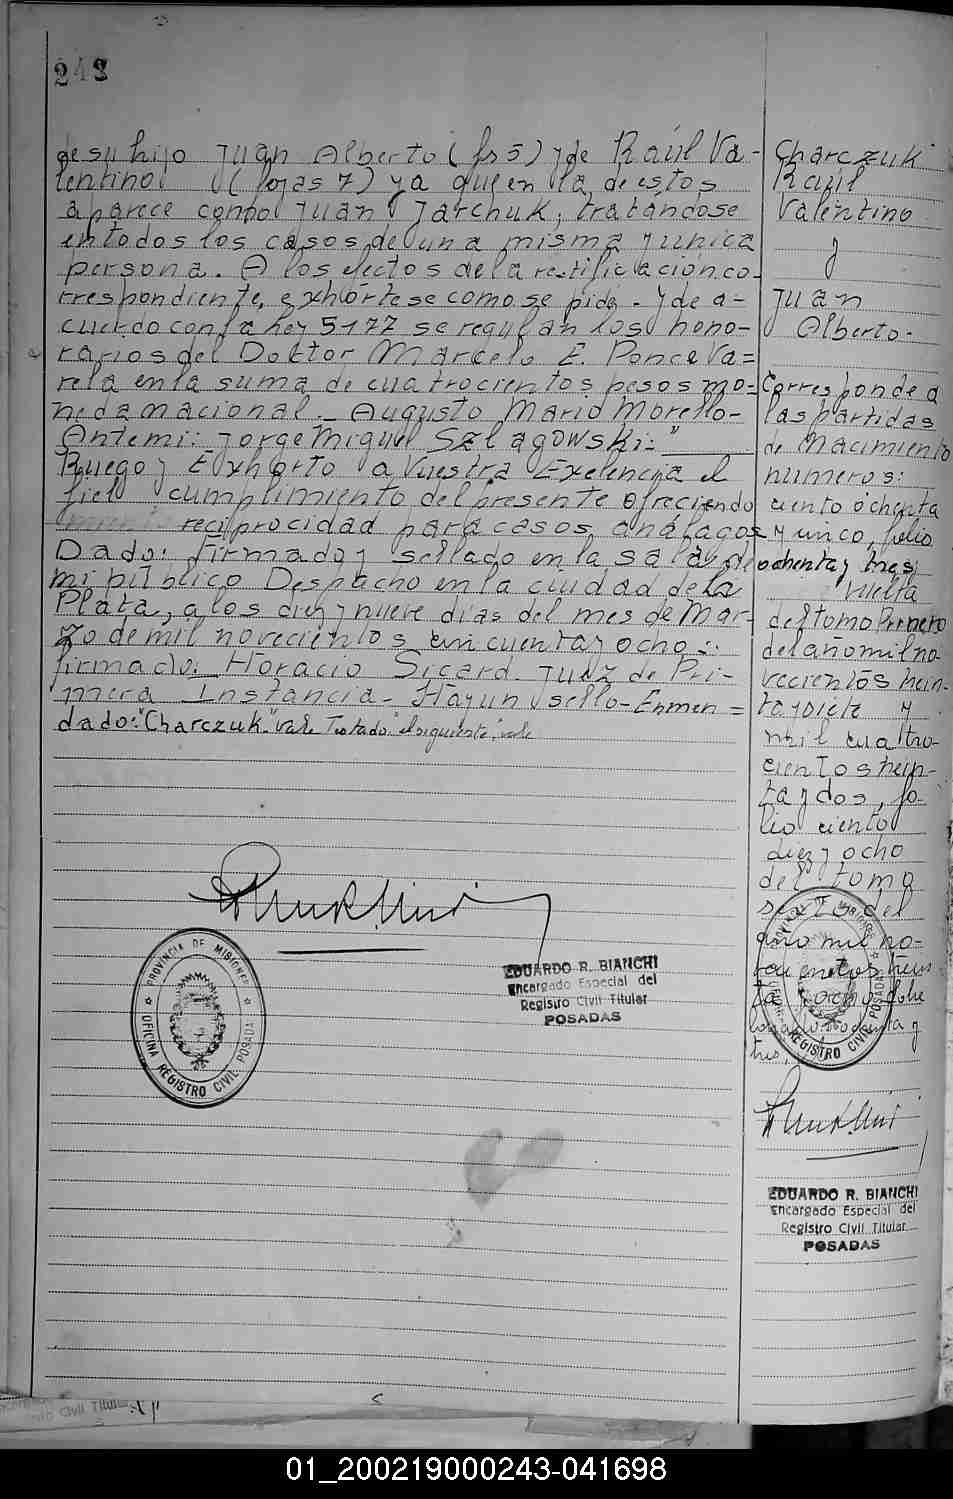 248
de su hijo Juan Alberto (fs 5) y de Raúl Va-
lentino (fojas 7) ya que en la de estos
aparece como Juan Jarchuk, tratándose
en todos los casos de una misma y unica
persona. A los efectos de la rectificación co-
rrespondiente, exhórtese como se pide - y de a-
cuerdo con la ley 5177 se regulan los hono-
rarios del Doctor Marcelo E. Ponce Va=
rela en la suma de cuatrocientos pesos mo=
neda nacional. Augusto Mario Morello-
Antemi: Jorge Miguel Szlagowski:"
Ruego y Exhorto a Vuestra Exelencia el
fiel cumplimiento del presente ofreciendo
reciprocidad para casos análagos
Dado: firmado y sellado en la sala de
mi público Despacho en la ciudad de La
Plata, a los diez y nueve dias del mes de Mar-
zo de mil novecientos cincuenta y ocho.:
firmado: Horacio Sicard. Juez de Pri-
mera Instancia - Hay un sello - Enmen=
dado: "Charczuk" vale Testado "el siguiente" vale
EDUARDO R. BIANCHI
Encargado Especial del
Registro Civil Titular
POSADAS
PROVINCIA DE MISIONES
OFICINA REGISTRO CIVIL POSADAS
Charczuk
Raúl
Valentino
y
Juan
Alberto.
Corresponde a
las partidas
de Nacimiento
numeros:
ciento ochenta
y unico, folio
ochenta y tres
vuelta
del tomo Primero
del año mil no-
vecientos trein-
ta y siete y
mil cuatro-
cientos trein-
ta y dos, fo-
lio ciento
diez y ocho
del tomo
sexto del
año mil no-
vecientos trein
ta y ocho, folio
y
tres,
PROVINCIA DE MISIONES
OFICINA REGISTRO CIVIL POSADAS
EDUARDO R. BIANCHI
Encargado Especial del
Registro Civil Titular
POSADAS
Civil Titular
01_200219000243-041698